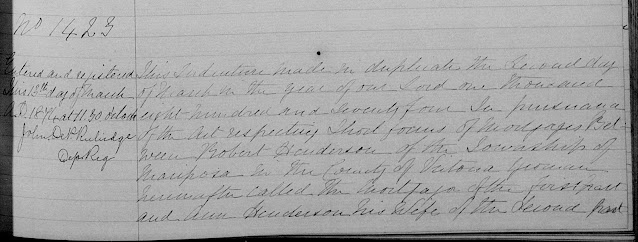 No 1423
Entered and registered
this 13th day of March
A.D. 1874 at 11.30 oclock
John D
Dep Reg
This Indenture made in duplicate the Second day
of March in the year of our Lord one thousand
eight hundred and seventy four In pursuance
of the Act respecting Short forms of Mortgages Bet-
ween Robert Henderson of the Township of
Mariposa in the County of Victoria yeoman
hereinafter called the Mortgagor of the first part
and Ann Henderson his Wife of the Second Part